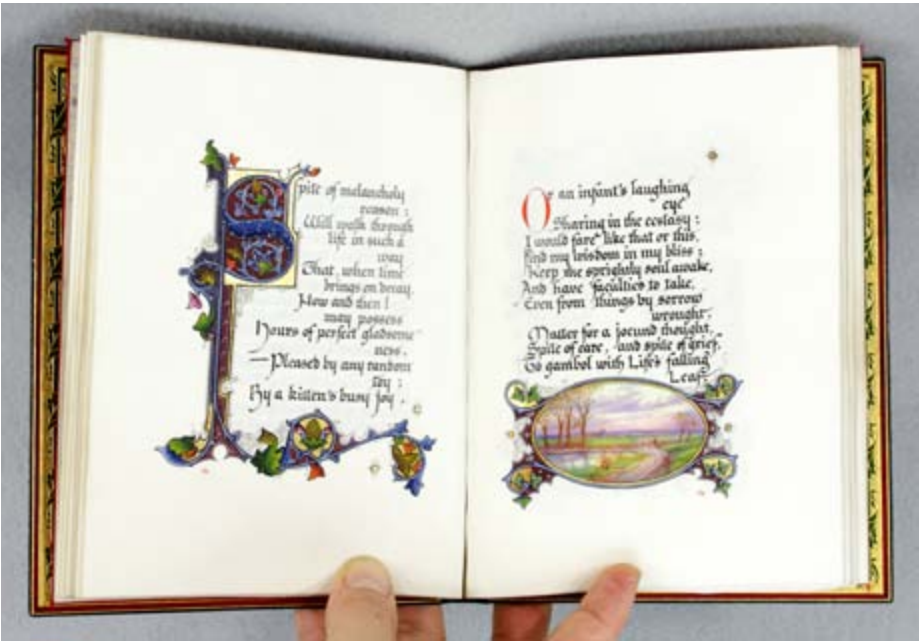 Spite of melancholy
reason :
Will walk through
life in such a
way
That, when time
brings on decay,
Now and then I
may possess
Hours of perfect gladsome
ness.
—Pleased by any random
toy ;
By a kitten's busy joy,
Or an infant's laughing
eye
Sharing in the ecstasy ;
I would fare like that or this,
Find my wisdom in my bliss ;
Keep the sprightly soul awake,
And have faculties to take,
Even from things by sorrow
wrought,
Matter for a jocund thought,
Spite of care, and spite of grief,
To gambol with Life's falling
Leaf.